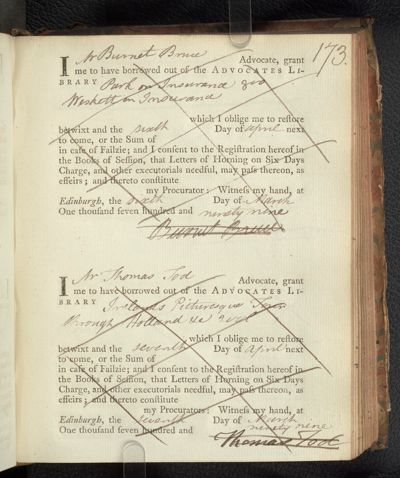 173.
I Mr Burnet Bruce Advocate, grant
me to have borrowed out of the ADVOCATES LI-
BRARY Park on Insurance 8vo
Weskett on Insurance
which I oblige me to reſtore
betwixt and the sixth Day of April next
to come, or the Sum of
in caſe of Failzie; and I conſent to the Regiſtration hereof in
the Books of Seſſion, that Letters of Horning on Six Days
Charge, and other executorials needful, may paſs thereon, as
effeirs; and thereto conſtitute
my Procurator: Witneſs my hand, at
Edinburgh, the sixth Day of March
One thouſand ſeven hundred and ninety nine
Burnet Bruce
I Mr Thomas Tod Advocate, grant
me to have borrowed out of the ADVOCATES LI-
BRARY Irelands Picturesque Tour
through Holland &c 2 vols
which I oblige me to reſtore
betwixt and the seventh Day of April next
to come, or the Sum of
in caſe of Failzie; and I conſent to the Regiſtration hereof in
the Books of Seſſion, that Letters of Horning on Six Days
Charge, and other executorials needful, may paſs thereon, as
effeirs; and thereto conſtitute
my Procurators: Witneſs my hand, at
Edinburgh, the seventh Day of March
One thouſand ſeven hundred and ninety nine
Thomas Tod